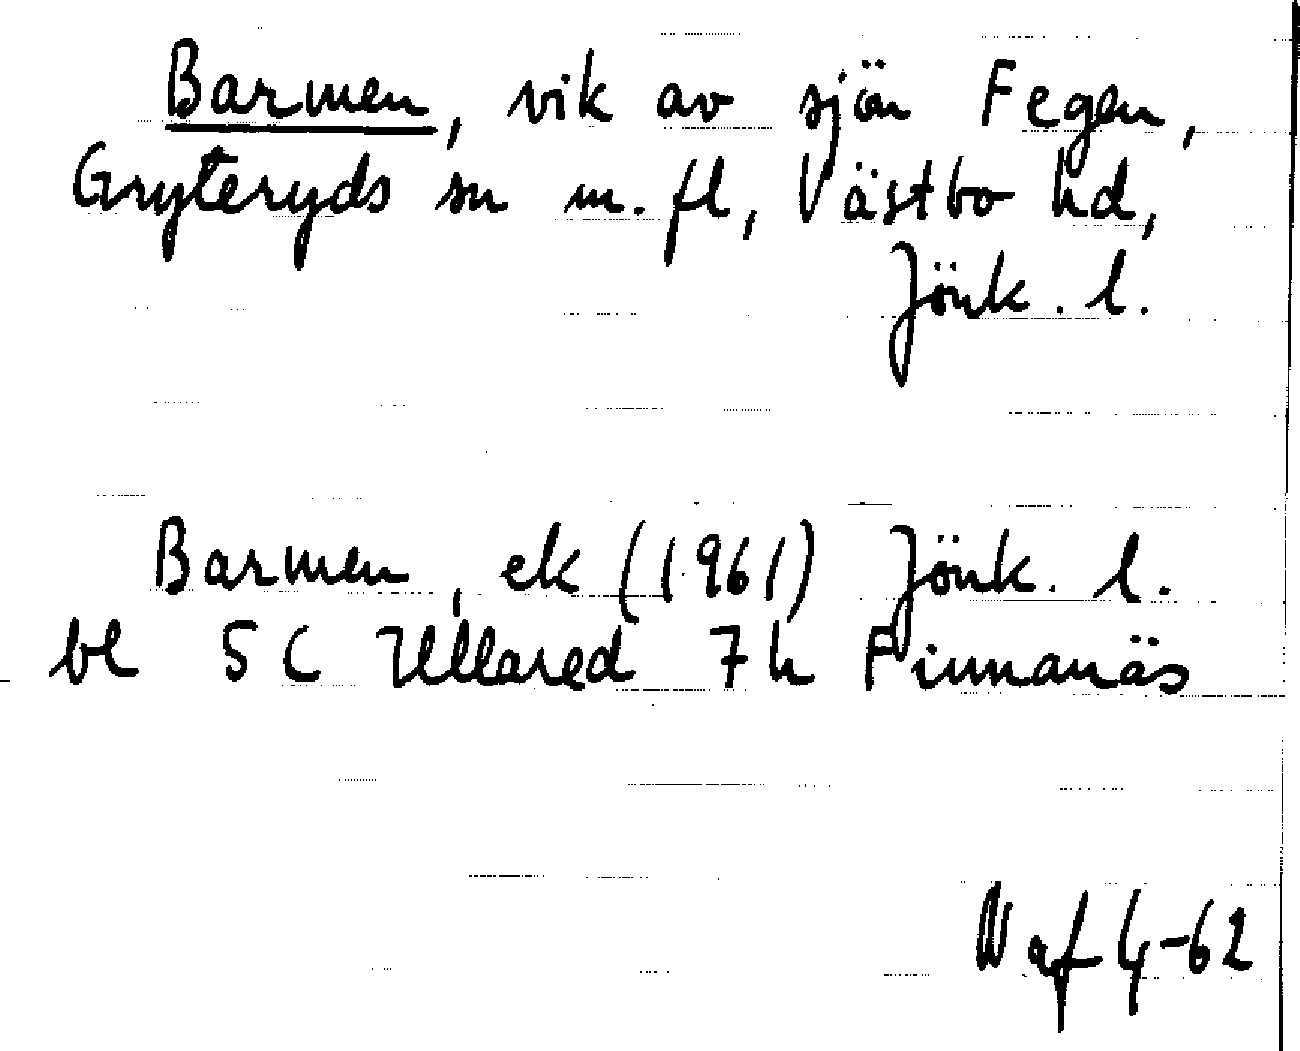 Barmen, vik av sjön Fegen,
Gryteryds sn m. fl, Västbo hd,
Jönk. l.
Barmen, ek (1961) Jönk. l.
bl 5C Ullared 7h Finnanäs
N af 4-62